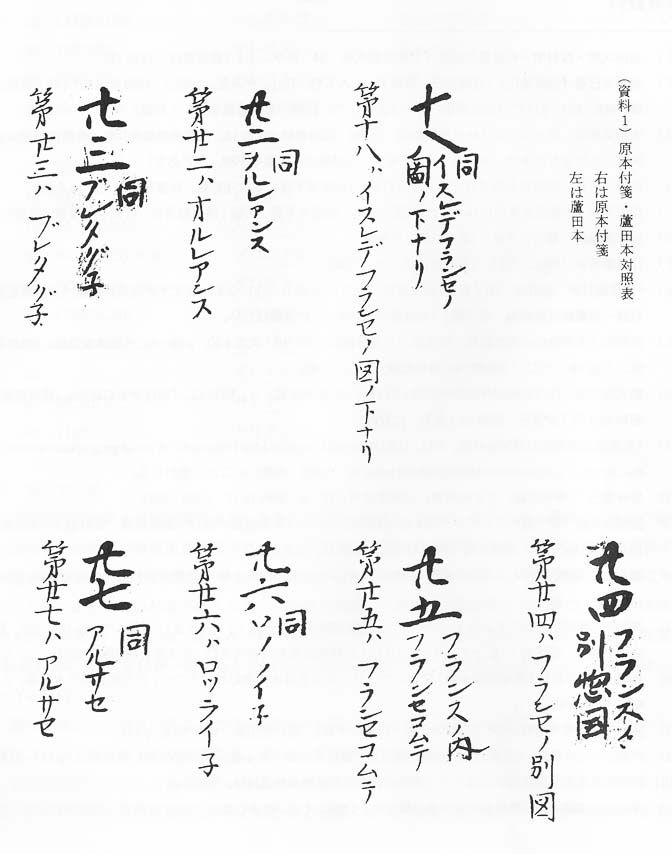 （資料１　原本付箋・蘆田本対照表
右は原本付箋
左は蘆田本
十八　同　イスレデフランセノ
圖ノ下ナリ
第十八ハイスレデフランセノ図ノ下リ
廿二　同　ヲルレアンス
第廿二ハオルレアンス
廿三　同　ブレタグ子
第廿三ハブレタグ子
廿四　フランス之
別惣図
第廿四ハフランセノ別図
廿五　フランス内
フランセコムテ
第廿五ハフランセコムテ
廿六　同
第廿六ロッライ子
廿七　同　アルサセ
第廿七ハアルサセ